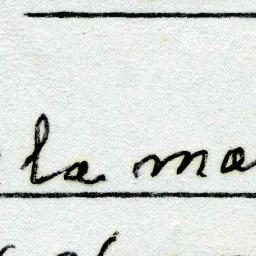 la ma